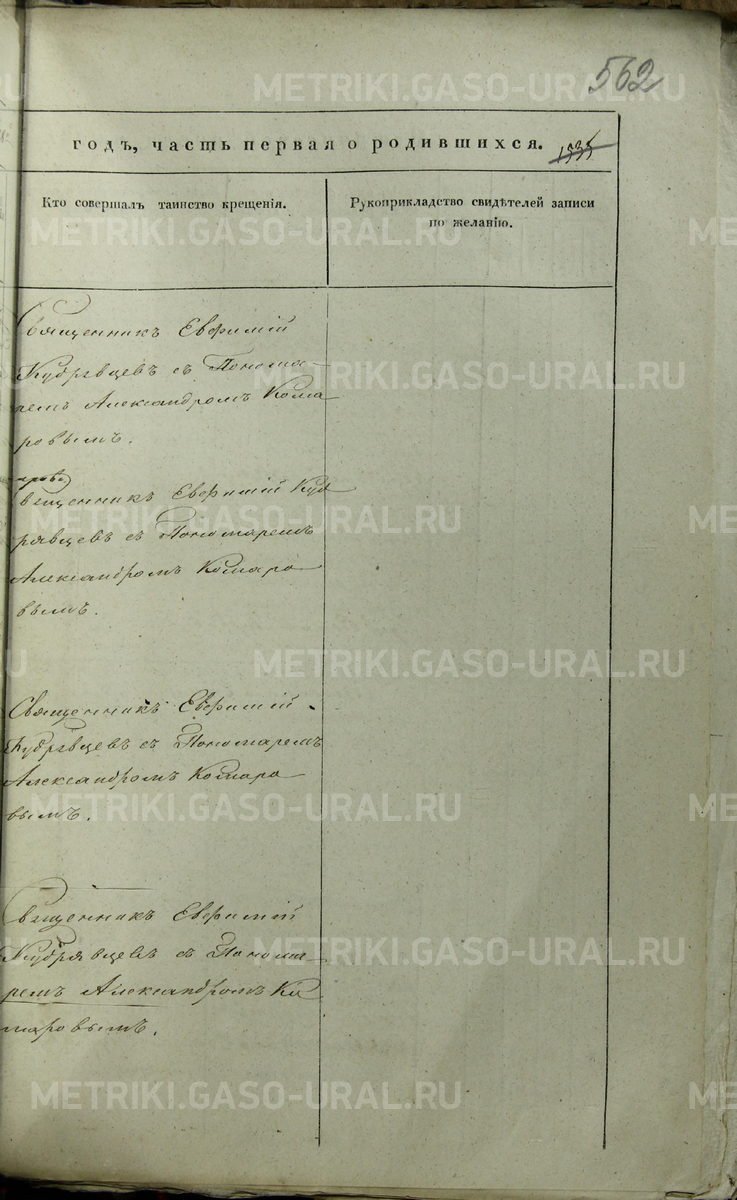 562
годъ, часть первая о родившихся.
Кто совершалъ таинство крещенія.
Рукоприкладство свидѣтелей записи
по желанію.
Священникъ Евфимій
Кудрявцевъ съ Понома-
ремъ Александромъ Кома
ровымъ.
Священникъ Евфимій Куд
рявцевъ съ Пономаремъ
Александромъ Комаро
вымъ.
Священникъ Евфимій
Кудрявцевъ съ Пономаремъ
Александромъ Комаро
вымъ.
Священникъ Евфимій
Кудрявцевъ съ Понома-
ремъ Александромъ Ко
маровымъ.
METRIKI.GASO-URAL.RU